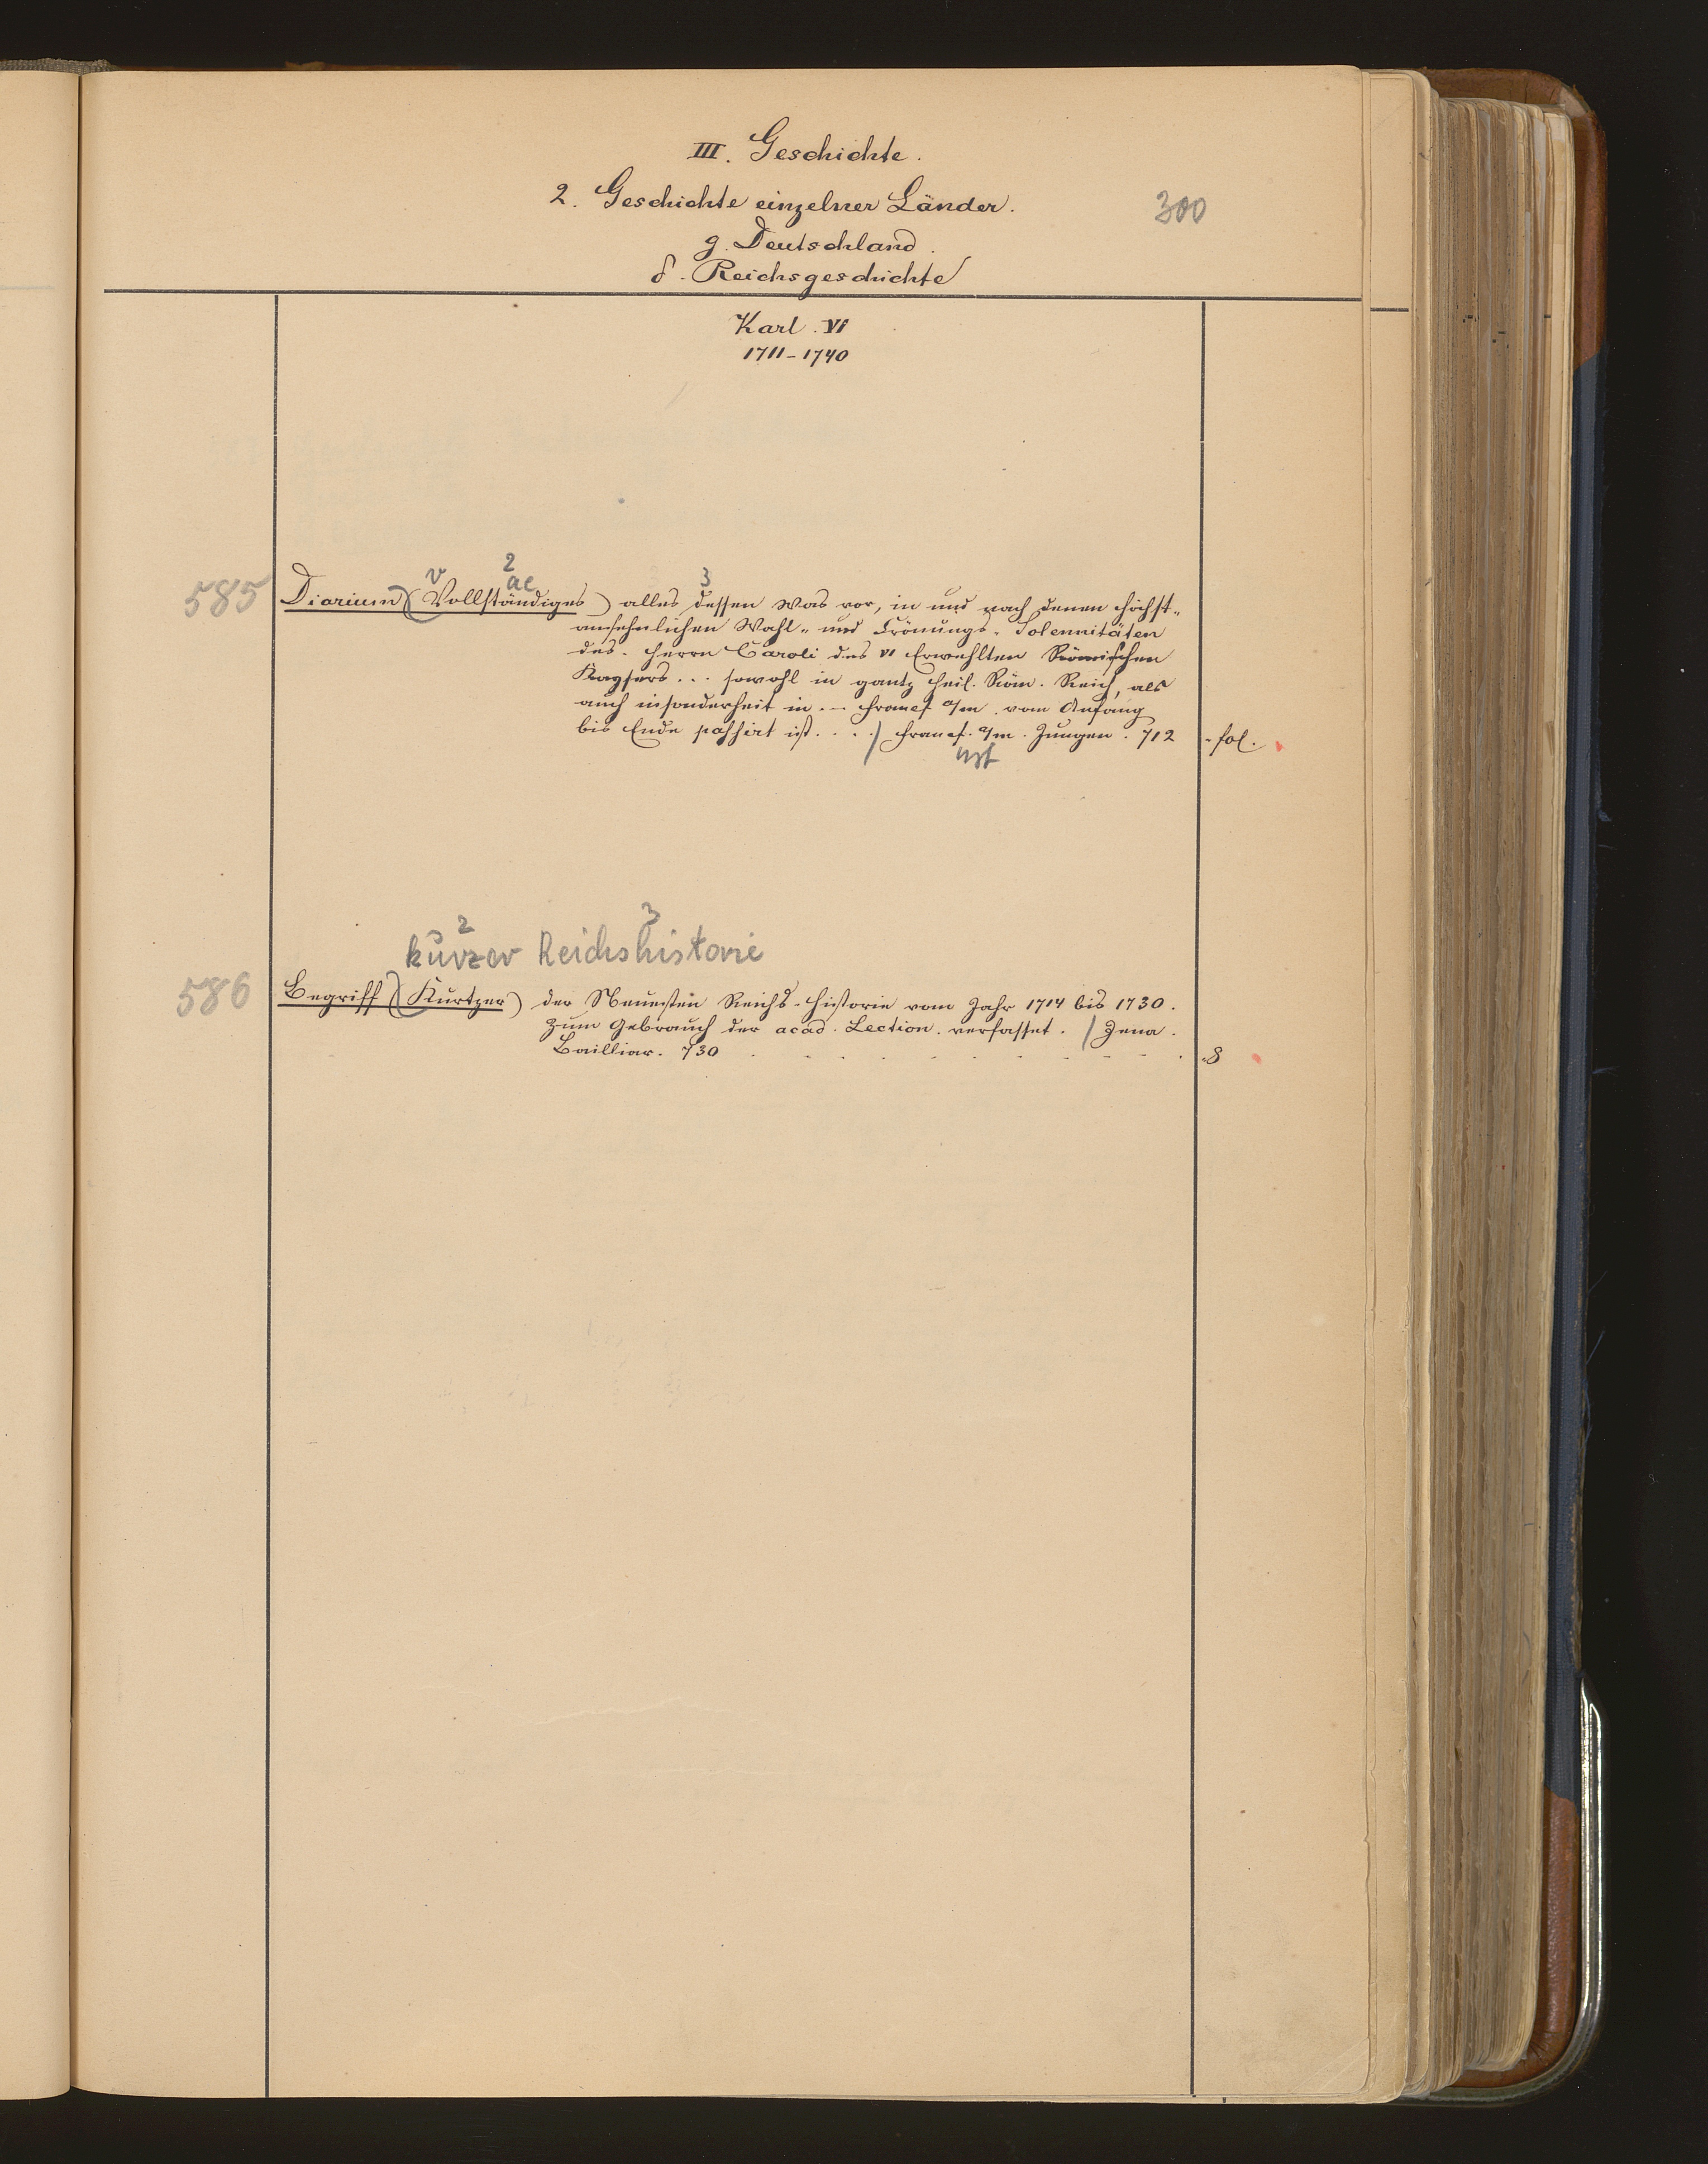 III. Geschichte.
2. Geschichte einzelner Länder.
300
g. Deutschland.
δ. Reichsgeschichte
Karl. VI
1711-1740
2
v ae 3
585 Diarium (Vollständiges) alles dessen was vor, in und nach denen höchst-
ansehnlichen Wahl- und Crönungs-Solennitäten
des. Herrn Caroli des VI Erwehlten Römischen
Kaysers... sowohl in gantz heil. Röm. Reich, als
auch insonderheit in... Francf a/m. vom Anfang
bis Ende passirt ist....) Francf. a/m. Jungen. 712 - fol.
2 3
kurzer Reichshistorie
586 Begriff (Kurtzer) der Neuesten Reichs-Historie vom Jahr 1714 bis 1730.
zum Gebrauch der acad. Lection. verfasset. / Jena.
Bailliar. 730 . . . . . . . . . . 8